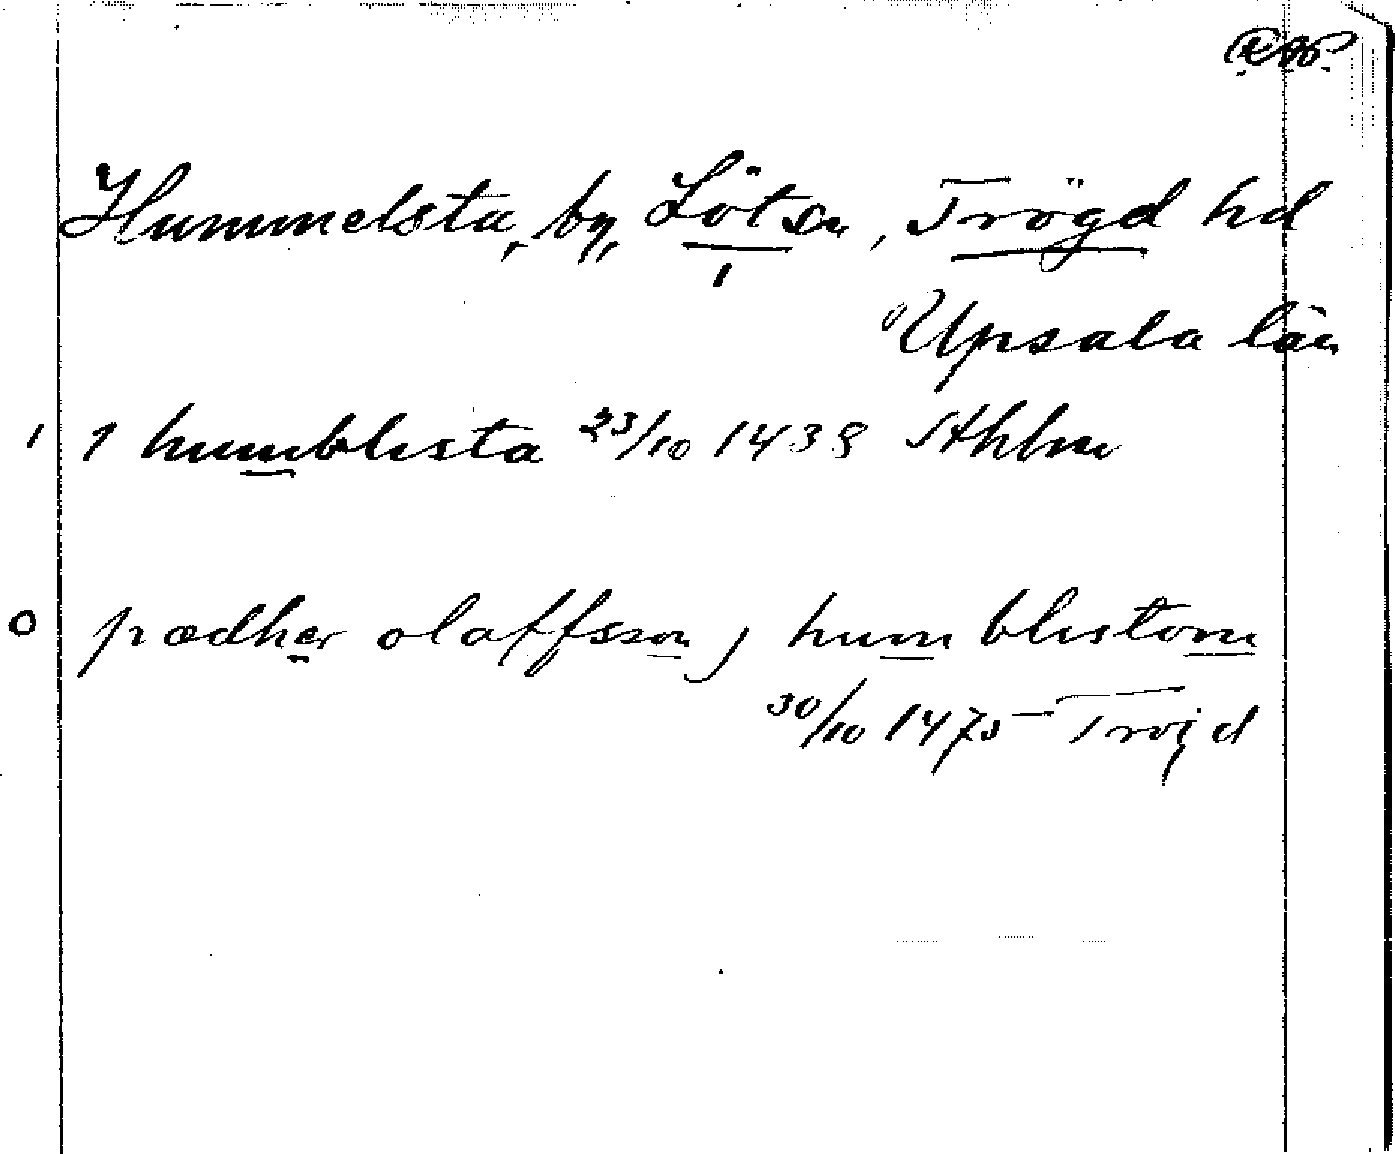 Hummelsta, by, Löt sn, Trögd hd
1
Upsala län
1 1 humblista 23/10 1438 Sthlm
0 pædher olaffsson j humblistom
30/10 1475 Trögd